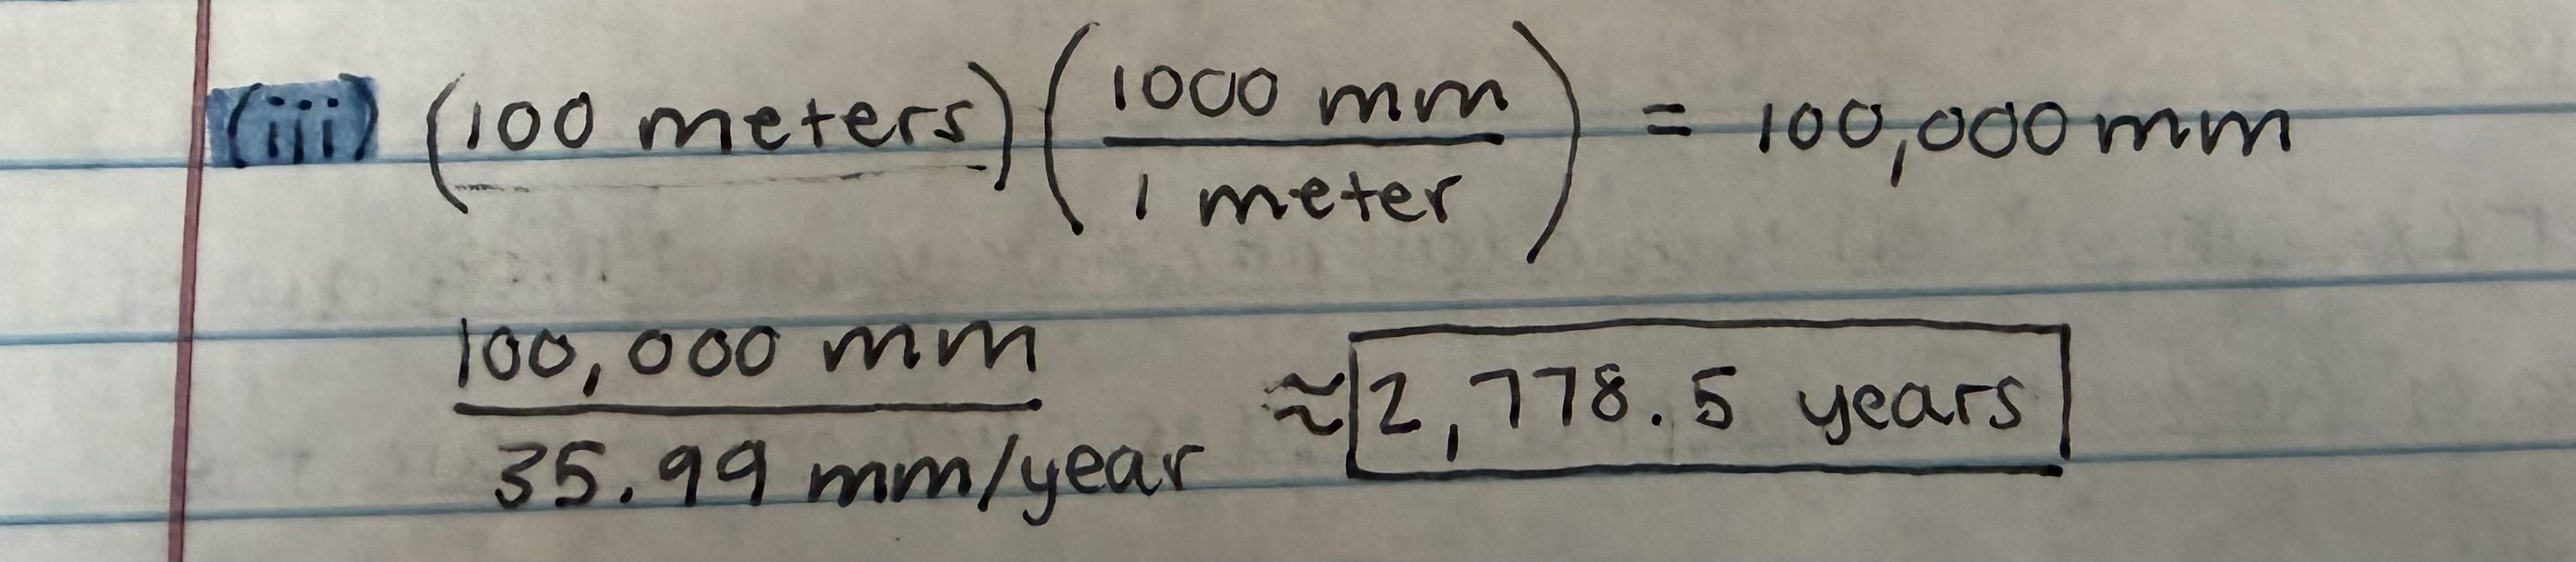 (iii) (100 meters) (1000 mm / 1 meter) = 100,000 mm
100,000 mm / 35.99 mm/year ≈ 2,778.5 years